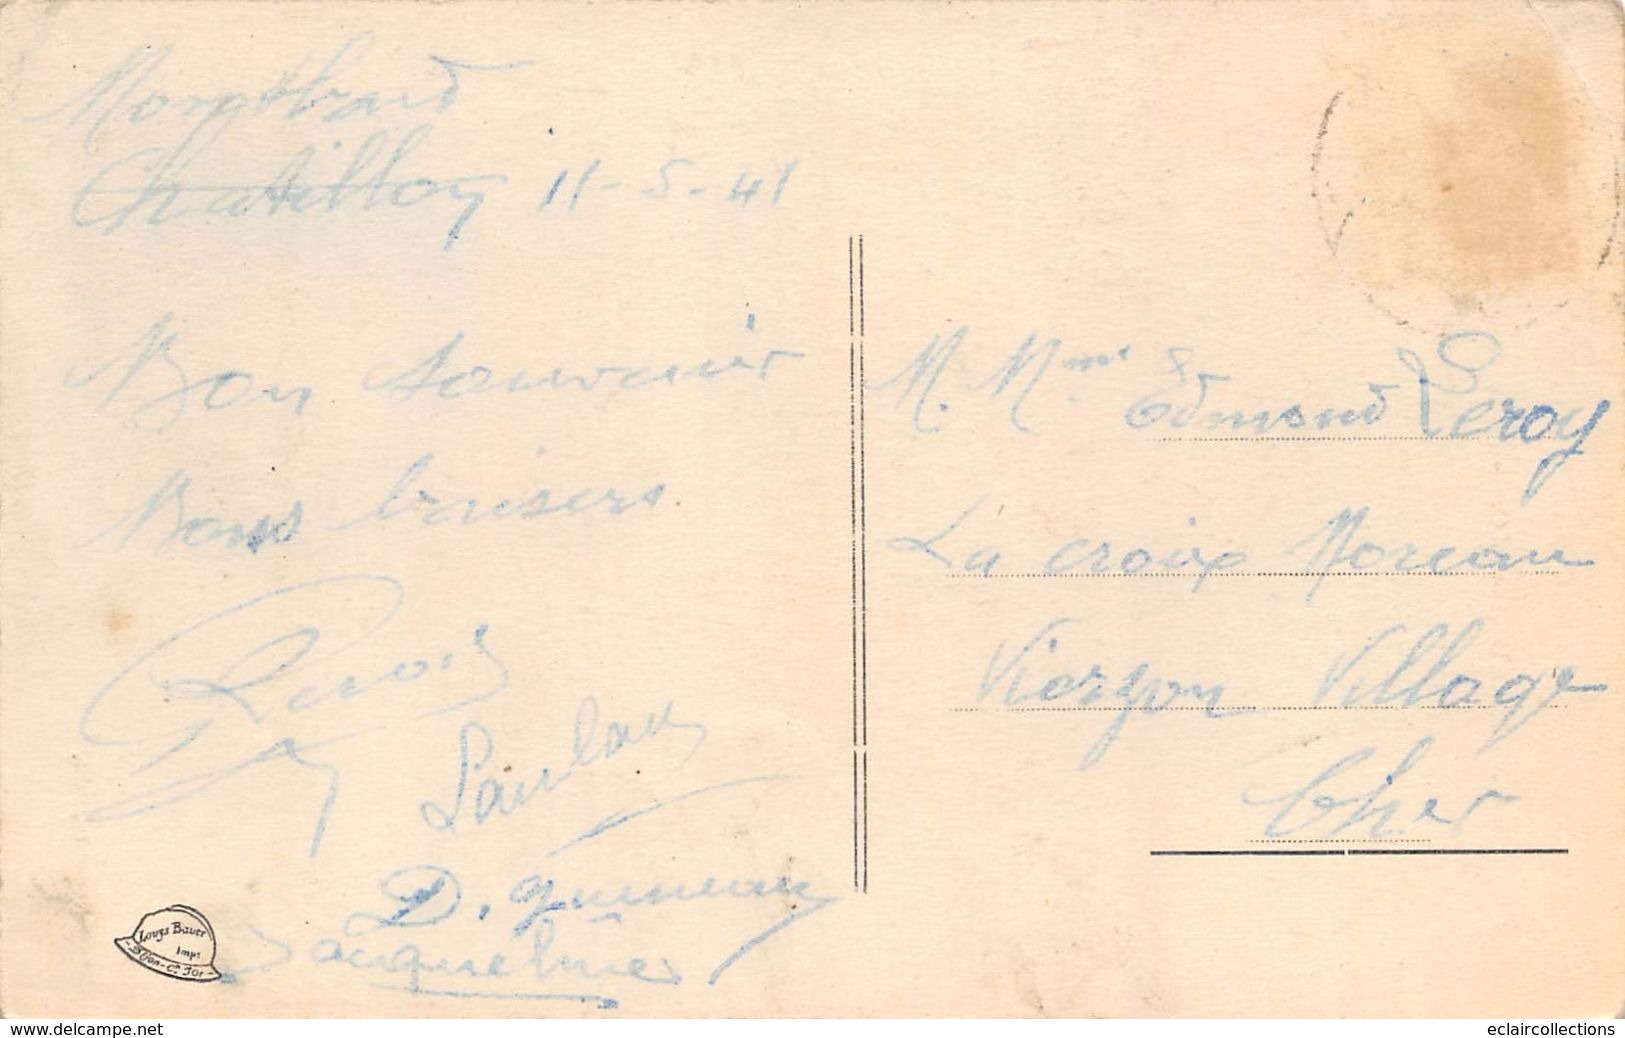 Montbard
Chatillon 11-5-41
Bon souvenir
Bons baisers
D. queneau
Jacqueline
Louys Bauer
Impr
Dijon-C. d'Or
M. Mme Edmond Leroy
La croix Moreau
Vierzon Village
Cher
www.delcampe.net
eclaircollections